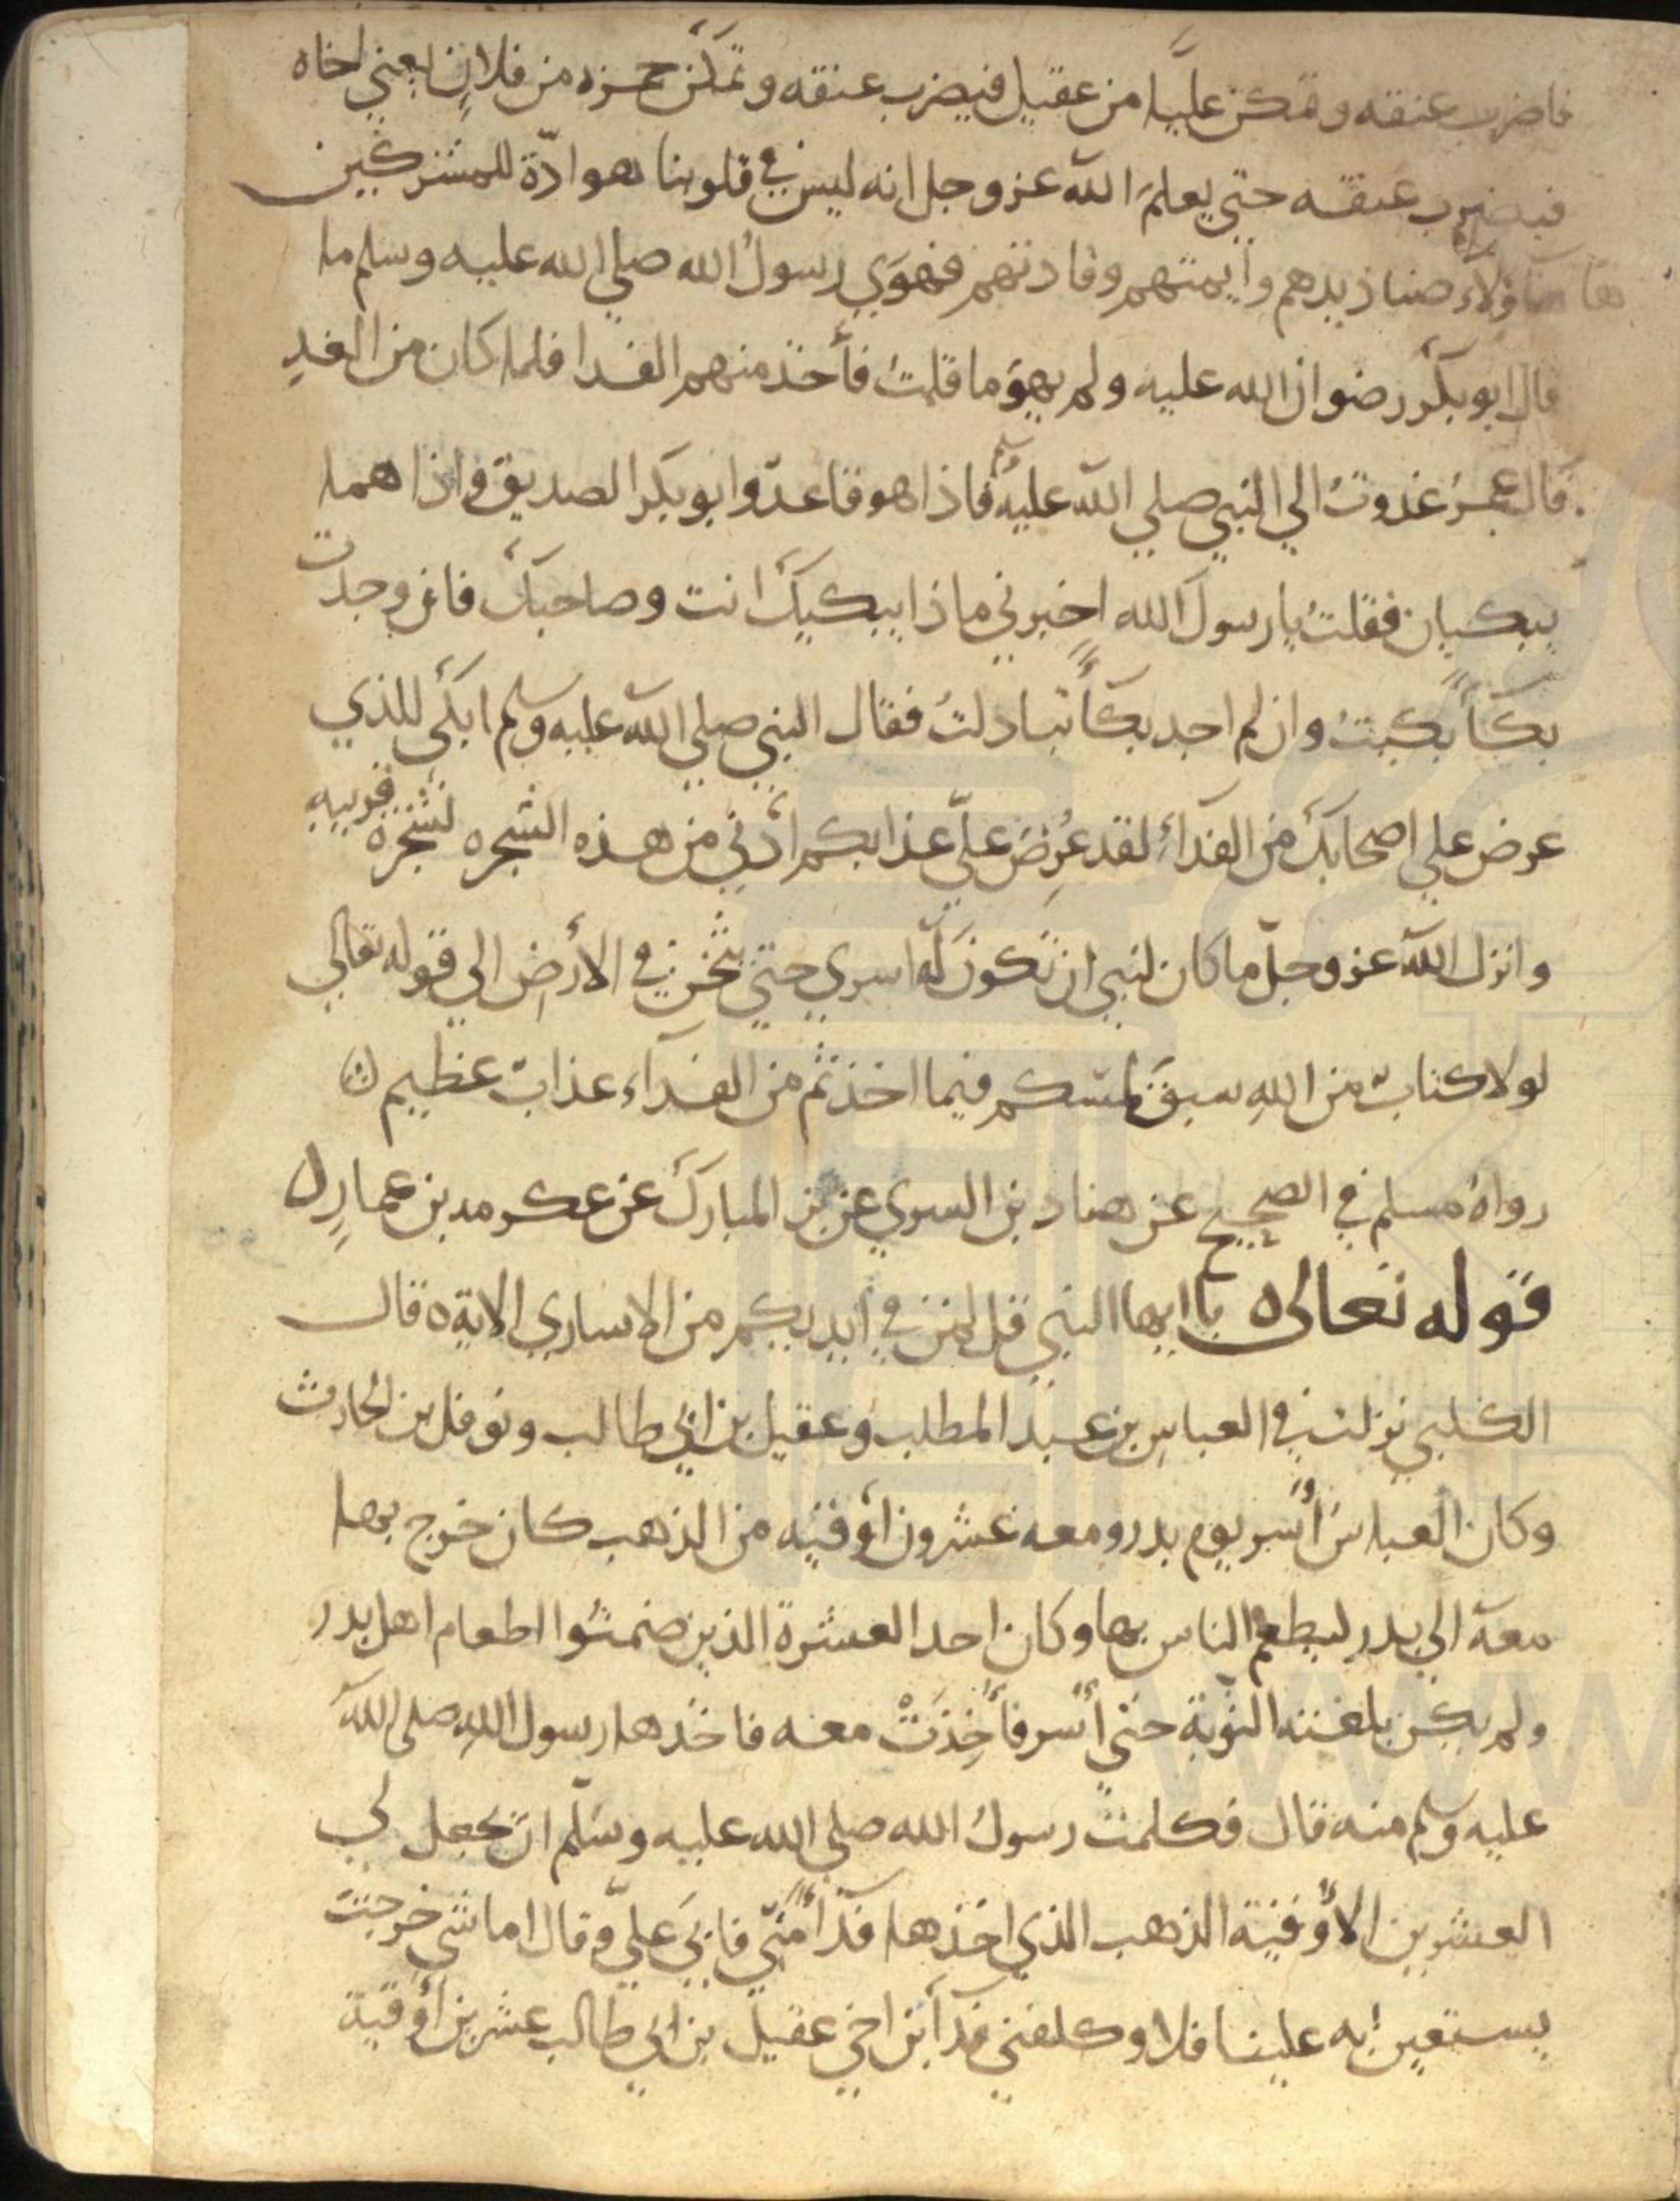 فاضرب عنقه وتمكن عليا من عقيل فيضرب عنقه وتمكن حمزه من فلان يعني اخاه
فيضرب عنقه حتي يعلم الله عز وجل انه ليس في قلوبنا هوادة للمشركين
هاؤلاء صناديدهم وأيمتهم وقادتهم فهوي رسول الله صلي الله عليه وسلم ما
قال ابو بكر رضوان الله عليه ولم يهو ما قلت فأخذ منهم الفدا فلما كان من الغد
قال عمر غدوت الي النبي صلي الله عليه وسلم فاذا هو قاعد وابو بكر الصديق واذا هما
يبكيان فقلت يا رسول الله اخبرني ماذا يبكيك انت وصاحبك فان وجدت
بكأ بكيت وان لم اجد بكأ تبادلت فقال النبي صلي الله عليه وسلم ابكي للذي
عرض علي اصحابك من الفدأ لقد عرض علي عذابكم ادني من هذه الشجره لشجرة قريبه
وانزل الله عز وجل ما كان لنبي ان تكون له اسري حتي يثخن في الأرض الي قوله تعالي
لولا كتاب من الله سبق لمسكم فيما اخذتم من الفداء عذاب عظيم
رواه مسلم في الصحيح عن هناد بن السري عن بن المبارك عن عكرمه بن عمار
قوله تعالى يا ايها النبي قل لمن في ايديكم من الاساري الاية قال
الكلبي نزلت في العباس بن عبد المطلب وعقيل بن ابي طالب ونوفل بن الحارث
وكان العباس أسر يوم بدر ومعه عشرون أوقيه من الذهب كان خرج بها
معه الي بدر ليطعم الناس بها وكان احد العشرة الذين ضمنوا اطعام اهل بدر
ولم يكن بلغته النوبة حتي أسر فأخذت معه فاخذها رسول الله صلى الله
عليه وسلم منه قال فكلمت رسول الله صلي الله عليه وسلم ان يجعل لي
العشرين الأوقية الذهب الذي اخذها فدأ مني فابي علي وقال اما شي خرجت
يستعين به علينا فلا وكلفني فدآ بن اخي عقيل بن ابي طالب عشرين أوقية